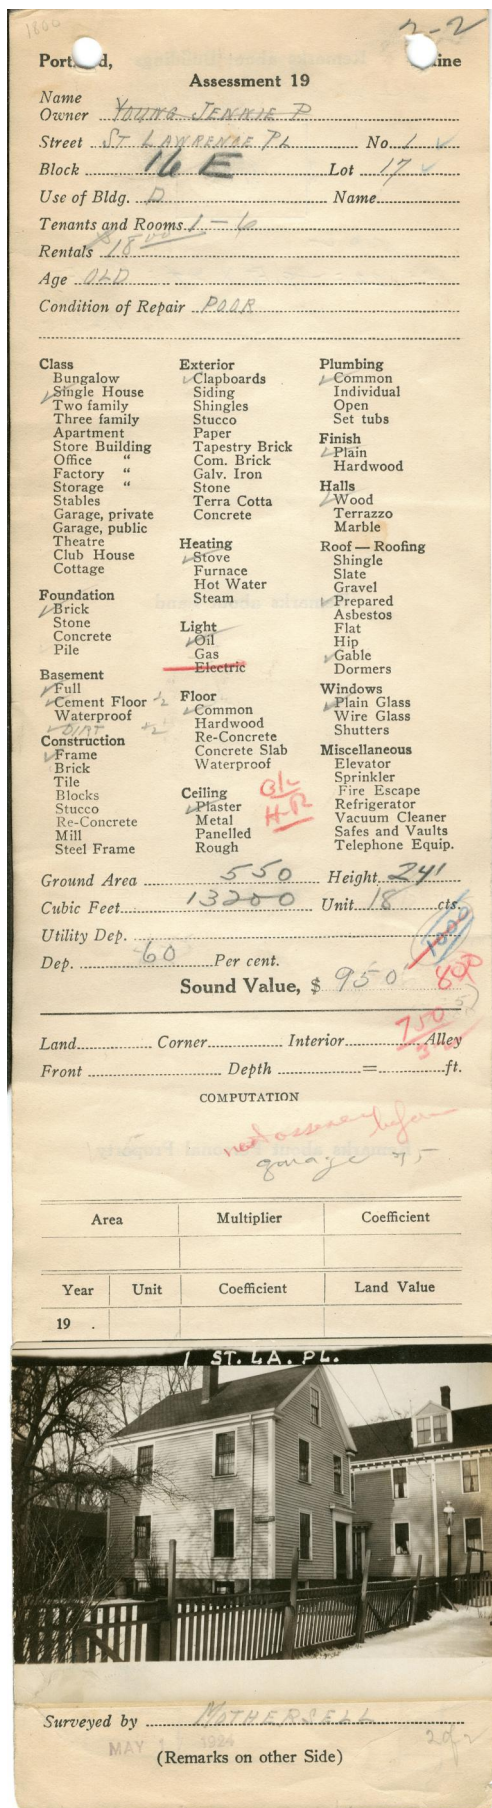 1800
2-2
Portland, Maine
Assessment 19
Name
Owner YOUNG JENNIE P
Street ST LAWRENCE PL No. 1
Block 16 E Lot 17
Use of Bldg. D Name
Tenants and Rooms 1-6
Rentals $18.00
Age OLD
Condition of Repair POOR
Class
Bungalow
Single House
Two family
Three family
Apartment
Store Building
Office "
Factory "
Storage "
Stables
Garage, private
Garage, public
Theatre
Club House
Cottage
Foundation
Brick
Stone
Concrete
Pile
Basement
Full
Cement Floor 1/2
Waterproof
DIRT 1/2
Construction
Frame
Brick
Tile
Blocks
Stucco
Re-Concrete
Mill
Steel Frame
Exterior
Clapboards
Siding
Shingles
Stucco
Paper
Tapestry Brick
Com. Brick
Galv. Iron
Stone
Terra Cotta
Concrete
Heating
Stove
Furnace
Hot Water
Steam
Light
Oil
Gas
Electric
Floor
Common
Hardwood
Re-Concrete
Concrete Slab
Waterproof
Ceiling
Plaster
Metal
Panelled
Rough
Plumbing
Common
Individual
Open
Set tubs
Finish
Plain
Hardwood
Halls
Wood
Terrazzo
Marble
Roof — Roofing
Shingle
Slate
Gravel
Prepared
Asbestos
Flat
Hip
Gable
Dormers
Windows
Plain Glass
Wire Glass
Shutters
Miscellaneous
Elevator
Sprinkler
Fire Escape
Refrigerator
Vacuum Cleaner
Safes and Vaults
Telephone Equip.
H-R
Ground Area 550 Height 24'
Cubic Feet 13200 Unit 18 cts.
Utility Dep. 1000
Dep. 60 Per cent. 800
Sound Value, $ 950
750
Land Corner Interior Alley
Front Depth = ft.
COMPUTATION
not assessed before
garage 75
Area Multiplier Coefficient
Year Unit Coefficient Land Value
19 .
1 ST. LA. PL.
Surveyed by MOTHERSELL
MAY 1 1924
2 of 2
(Remarks on other Side)